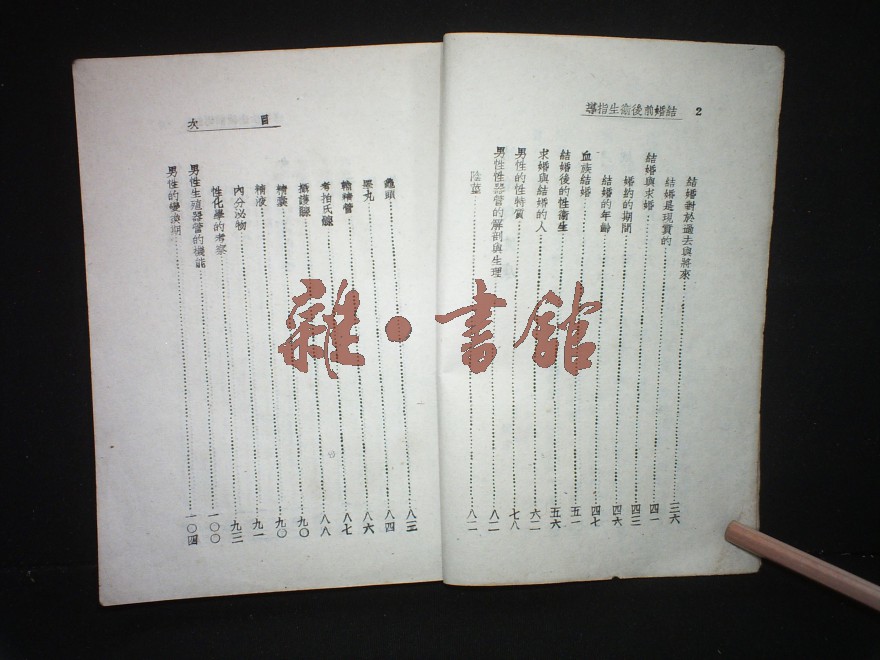 2 結婚前後衛生指導
結婚對於過去與將來⋯⋯三六
結婚是現實的⋯⋯四一
結婚與求婚⋯⋯四三
婚約的期間⋯⋯四六
結婚的年齡⋯⋯四七
血族結婚⋯⋯五一
結婚後的性衛生⋯⋯五六
求婚與結婚的人⋯⋯六二
男性的性特質⋯⋯七八
男性性器管的解剖與生理⋯⋯八二
陰莖⋯⋯八二
目次
龜頭⋯⋯八三
睪丸⋯⋯八四
輸精管⋯⋯八六
考拍氏腺⋯⋯八七
攝護腺⋯⋯八八
精囊⋯⋯九〇
精液⋯⋯九〇
內分泌物⋯⋯九一
性化學的考察⋯⋯九三
男性生殖器管的機能⋯⋯一〇〇
男性的變換期⋯⋯一〇四
雜·書館